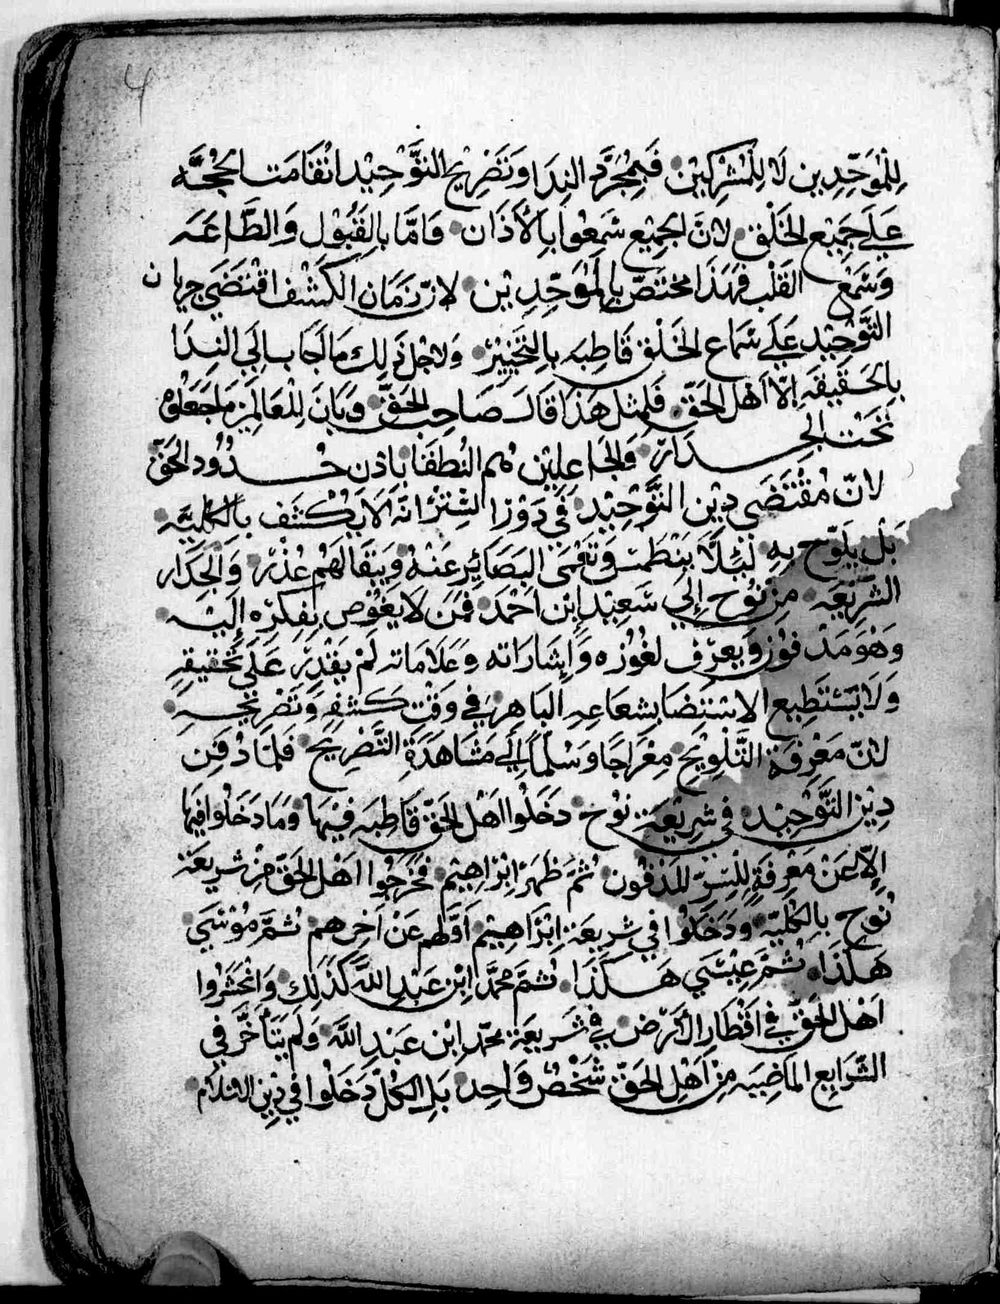 4
للموحّدين لا للمشركين فبمجرّد الندا وتصريح التوحيد انقامت الحجّه
على جميع الخلق لانّ الجميع سمعوا بالأذان وامّا بالقبول والطّاعه
وسمع القلب فهذا مختصّ بالموحّدين لانّ زمان الكشف اقتضى جريان
التّوحيد على سماع الخلق قاطبه بالتخيير ولاجل ذلك ما اجاب الى الندا
بالحقيقه الّا اهل الحقّ فلمثل هذا قال صاحب الحقّ وبان للعالمين ما جعلوه
تحت الجدار والجاعلين هم النطقا باذن حدود الحقّ
لانّ مقتضى دين التّوحيد في دور الستر انّه لا يكشف بالكليّه
بل يلوّح به لئلّا ينطمس وتعمى البصائر عنه ويبقا لهم عذر والجدار
الشريعه من نوح الى سعيد ابن احمد فمن لا يغوص بفكره اليه
وهو مدفون ويعرف لغوزه واشاراته وعلاماته لم يقدر على تحقيقه
ولا يستطيع الاستضا بشعاعه الباهر في وقت كشفه وتصريحه
لانّ معرفة التّلويح معراجا وسلّماً الى مشاهدة التّصريح فلمّا دفن
دين التّوحيد في شريعة نوح دخلوا اهل الحقّ قاطبه فيها وما دخلوا فيها
الّا عن معرفةٍ للسرّ المدفون ثمّ ظهر ابراهيم فخرجوا اهل الحقّ من شريعة
نوح بالكليّه ودخلوا في شريعة ابراهيم اوّلهم عن اخرهم ثمّ موسى
هكذا ثمّ عيسى هكذا ثمّ محمّد ابن عبد الله كذلك وانحشروا
اهل الحقّ في اقطار الارض في شريعة محمّد ابن عبد الله ولم يتأخّر في
الشّرايع الماضيه من اهل الحقّ شخصٌ واحد بل الكلّ دخلوا في دين الاسلام